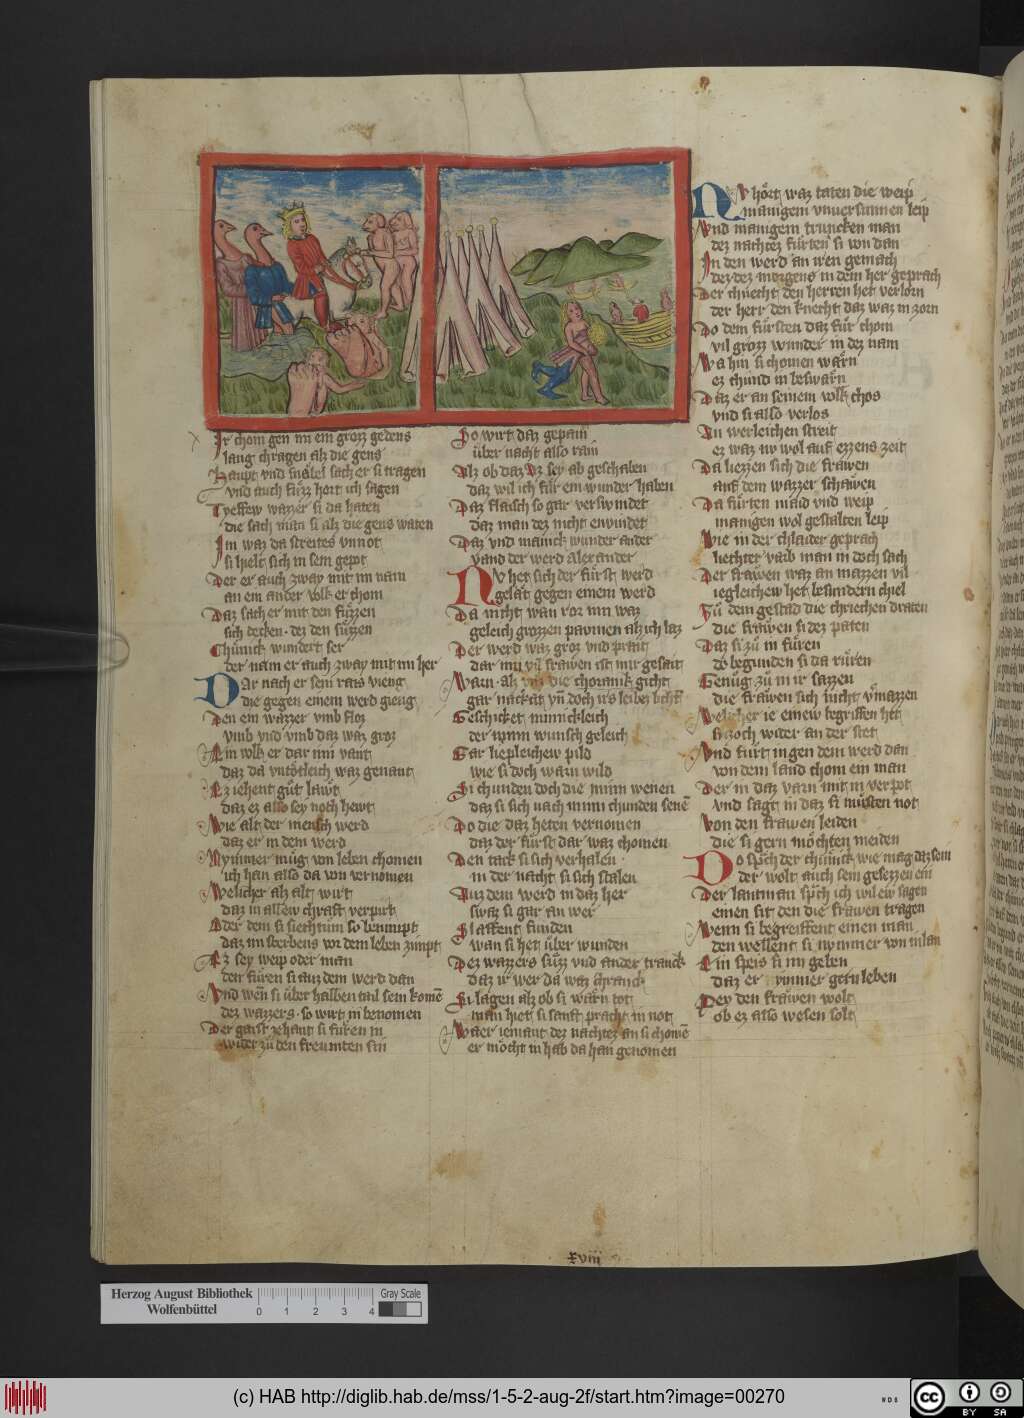 Ir chom gen im ein grozz gedens
lang chragen alz die gens
Haupt vnd snabel sach er si tragen
vnd auch fuzz hort ich sagen
Tyeffew wazzer si da haten
die sach man si alz die gens waten
Im waz da streites vnnot
si hielt sich in sein gepot
Der er auch zway mit im nam
an ein ander volk er chom
Daz sach er mit den fuzzen
sich decken dez den suzzen
Chunick wundert ser
der nam er auch zway mit im her
Dar nach er sein rais vieng
die gegen einem werd gieng
Den ein wazzer vmb floz
vmb vnd vmb daz waz groz
Ein volk er dar inn vant
daz da vntotleich waz genant
Ez iehent gut lawt
daz ez also sey noch hewt
Wie alt der mensch werd
daz er in dem werd
Nymmer mug von leben chomen
ich han also da von vernomen
Welicher alz alt wirt
daz in allew chraft verpirt
Oder dem si siechtum so benimpt
daz im sterbens vor dem leben zimpt
Ez sey weip oder man
den furen si auz dem werd dan
Vnd wen si uber halben tail sein kome
dez wazzers so wirt in benomen
Der gaist zehant si furen in
wider zu den freunten sin
So wirt daz gepain
uber nacht also rain
Alz ob daz az sey ab geschaben
daz wil ich fur ein wunder haben
Daz flaisch so gar verswindet
daz man dez nicht envindet
Daz vnd manick wunder ander
vand der werd Alexander
Nv het sich der furst werd
gelat gegen einem werd
Da nicht wan ror inn waz
geleich grozzen pawmen alz ich laz
Der werd waz groz vnd prait
dar inn vil frawen ist mir gesait
Warn alz vns die choranik gicht
gar nackat vn doch irs leibez licht
Geschicket minnickleich
der minn wunsch geleich
Gar liepleichew pild
wie si doch warn wild
Si chunden doch die minn wenen
daz si sich nach minn chunden sene
Do die daz heten vernomen
daz der furst dar waz chomen
Den tack si sich verhalen
in der nacht si sich stalen
Auz dem werd in daz her
swaz si gar an wer
Slaffent funden
wan si het uber wunden
Dez wazzers suzz vnd ander tranck
daz ir wer da waz chranck
Si lagen alz ob si warn tot
man hiet si sanft pracht in not
Waer iemant dez nachtez an si chome
er mocht in hab da han genomen
Nv hort waz taten die weip
manigem vnversunnen leip
Vnd manigem truncken man
dez nachtez furten si von dan
In den werd an iren gemach
dez morgens in dem her geprach
Der chnecht den herren het verlorn
der herr den knecht daz waz in zorn
Do dem fursten daz fur chom
vil grozz wunder in dez nam
Wa hin si chomen warn
ez chund in beswarn
Daz er an seinem volk chos
vnd si also verlos
An werleichen streit
ez waz nv wol auf ezzens zeit
Da liezzen sich die frawen
auf dem wazzer schawen
Da furten maid vnd weip
manigen wol gestalten leip
Wie in der chlaider geprach
liechter varib man in doch sach
Der frawen waz an mazzen vil
iegleichew het besundern chiel
Zu dem gestad die chriechen draten
die frawen si dez paten
Daz si zu in furen
do begunden si da ruren
Genug zu in ir sazzen
die frawen sich nicht vmazzen
Welicher ie einew begriffen het
si zoch wider an der stet
Vnd furt in gen dem werd dan
von dem land chom ein man
Der in daz varn mit in verpot
vnd sagt in daz si musten not
Von den frawen leiden
die si gern mochten meiden
Do sprch der chunick wie mag daz sein
der wolt auch sein gesezzen ein
Der lantman sprch ich wil ew sagen
einen sit den die frawen tragen
Wenn si begreiffent einen man
den wellent si nymmer von in lan
Ein speis si im geben
daz er immer gern leben
Pey den frawen wolt
ob ez also wesen solt
xviij
Herzog August Bibliothek
Wolfenbüttel
0 1 2 3 4
Gray Scale
(c) HAB http://diglib.hab.de/mss/1-5-2-aug-2f/start.htm?image=00270
WDB
CC BY SA